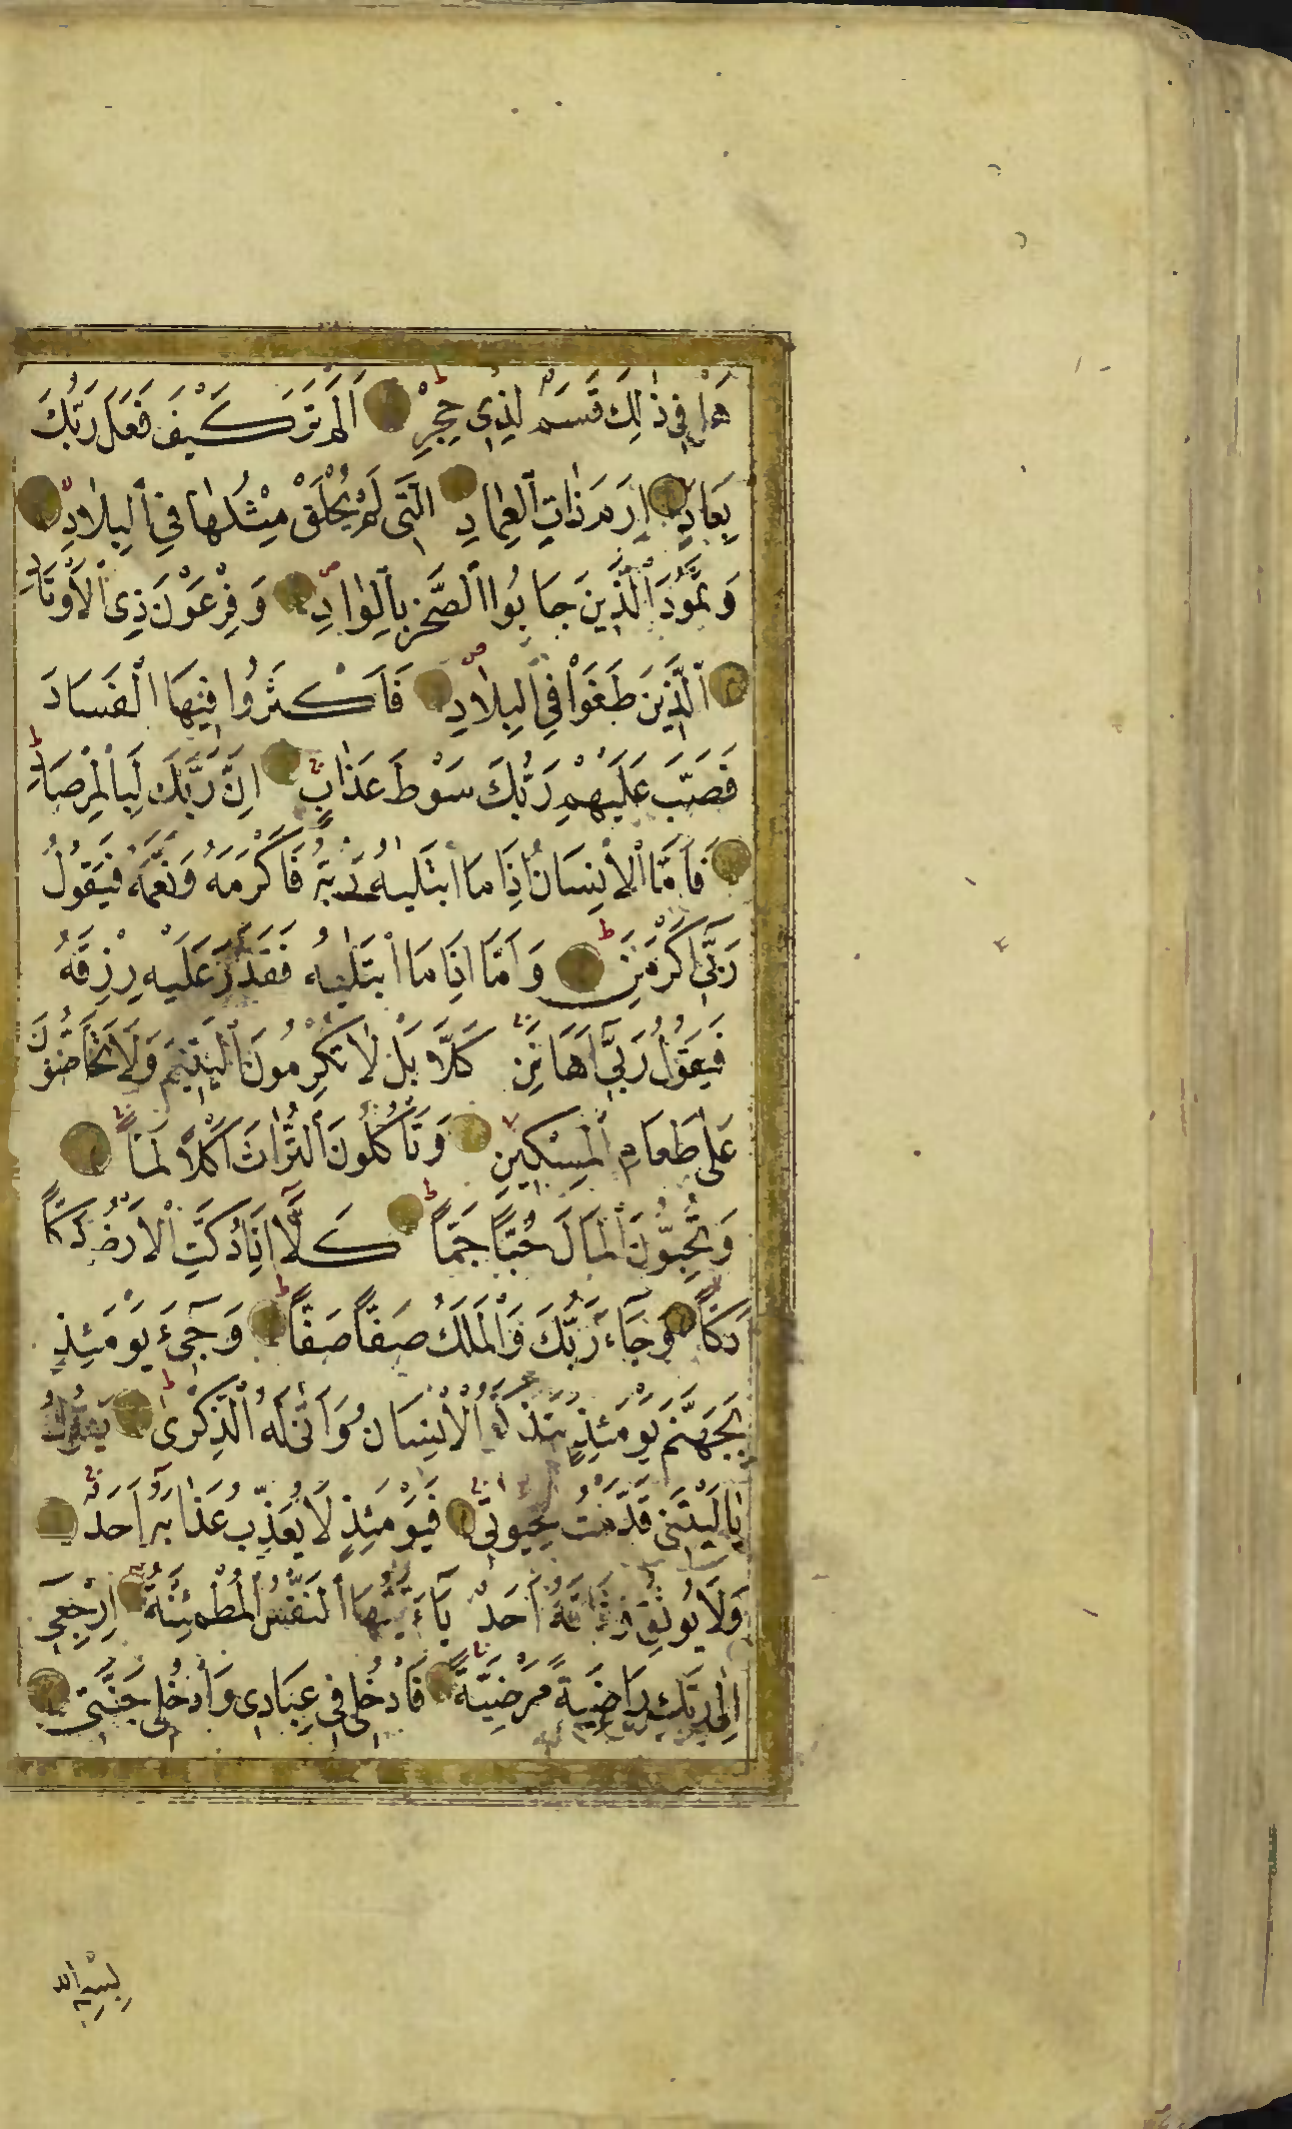 هَلْ فِي ذٰلِكَ قَسَمٌ لِذِي حِجْرٍ ط اَلَمْ تَرَ كَيْفَ فَعَلَ رَبُّكَ
بِعَادٍ اِرَمَ ذَاتِ ٱلْعِمَادِ الَّتِي لَمْ يُخْلَقْ مِثْلُهَا فِي ٱلْبِلَادِ ص
وَثَمُودَ ٱلَّذِينَ جَابُوا ٱلصَّخْرَ بِٱلْوَادِ ص وَفِرْعَوْنَ ذِي ٱلْاَوْتَادِ
ٱلَّذِينَ طَغَوْا فِي ٱلْبِلَادِ ص فَاَكْثَرُوا فِيهَا الْفَسَادَ
فَصَبَّ عَلَيْهِمْ رَبُّكَ سَوْطَ عَذَابٍ اِنَّ رَبَّكَ لَبِٱلْمِرْصَادِ ط
فَاَمَّا ٱلْاِنْسَانُ اِذَا مَا ابْتَلٰيهُ رَبُّهُ فَاَكْرَمَهُ وَنَعَّمَهُ فَيَقُولُ
رَبِّي اَكْرَمَنِ ط وَاَمَّا اِذَا مَا ابْتَلٰيهُ فَقَدَرَ عَلَيْهِ رِزْقَهُ
فَيَقُولُ رَبِّي اَهَانَنِ كَلَّا بَلْ لَا تُكْرِمُونَ ٱلْيَتِيمَ وَلَا تَحَاضُّونَ
عَلٰى طَعَامِ ٱلْمِسْكِينِ وَتَأْكُلُونَ ٱلتُّرَاثَ اَكْلًا لَمًّا
وَتُحِبُّونَ ٱلْمَالَ حُبًّا جَمًّا ط كَلَّا اِذَا دُكَّتِ ٱلْاَرْضُ دَكًّا
دَكًّا وَجَآءَ رَبُّكَ وَٱلْمَلَكُ صَفًّا صَفًّا ط وَجِيءَ يَوْمَئِذٍ
بِجَهَنَّمَ يَوْمَئِذٍ يَتَذَكَّرُ ٱلْاِنْسَانُ وَاَنّٰى لَهُ ٱلذِّكْرٰى ط يَقُولُ
يَا لَيْتَنِي قَدَّمْتُ لِحَيٰوتِي فَيَوْمَئِذٍ لَا يُعَذِّبُ عَذَابَهُ اَحَدٌ
وَلَا يُوثِقُ وَثَاقَهُ اَحَدٌ يَآءَيَّتُهَا ٱلنَّفْسُ ٱلْمُطْمَئِنَّةُ اِرْجِعِي
اِلٰى رَبِّكِ رَاضِيَةً مَرْضِيَّةً فَادْخُلِي فِي عِبَادِي وَٱدْخُلِي جَنَّتِي
بِسْمِ الله